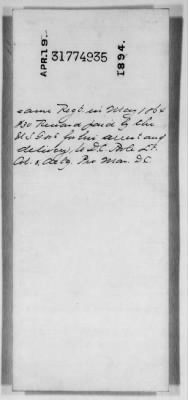 APR. 19.
31774935
1894.
same Regt. in May 1864
$30 Reward paid by the
U S Gov't for his arrest and
delivery, to D.C.
Col. &
Pro Mar. D.C.